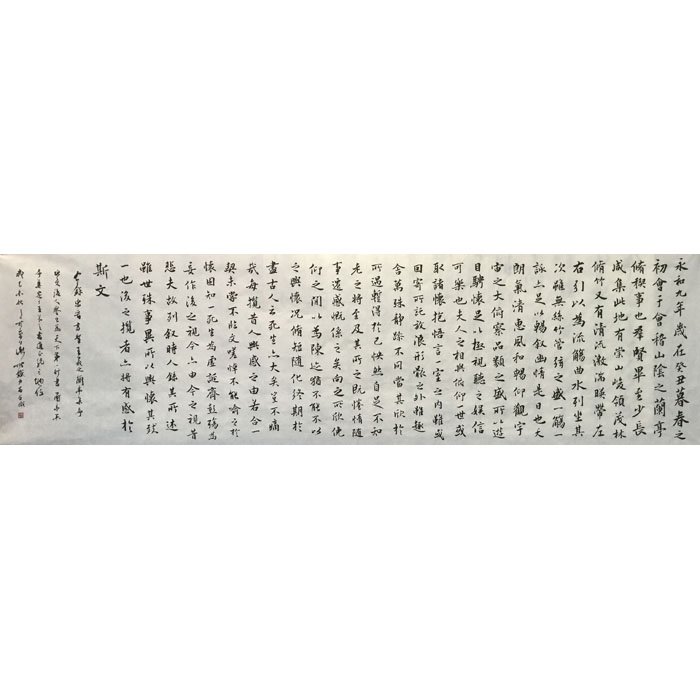 永和九年歲在癸丑暮春之
初會于會稽山陰之蘭亭
脩禊事也羣賢畢至少長
咸集此地有崇山峻領茂林
脩竹又有清流激湍暎帶左
右引以為流觴曲水列坐其
次雖無絲竹管絃之盛一觴一
詠亦足以暢敘幽情是日也天
朗氣清惠風和暢仰觀宇
宙之大俯察品類之盛所以遊
目騁懷足以極視聽之娛信
可樂也夫人之相與俯仰一世或
取諸懷抱悟言一室之內或
因寄所託放浪形骸之外雖趣
舍萬殊靜躁不同當其欣於
所遇暫得於己怏然自足不知
老之將至及其所之既惓情隨
事遷感慨係之矣向之所欣俛
仰之間以為陳迹猶不能不以
之興懷況脩短隨化終期於
盡古人云死生亦大矣豈不痛
哉每攬昔人興感之由若合一
契未嘗不臨文嗟悼不能喻之於
懷固知一死生為虛誕齊彭殤為
妄作後之視今亦由今之視昔
悲夫故列敘時人錄其所述
雖世殊事異所以興懷其致
一也後之攬者亦將有感於
斯文